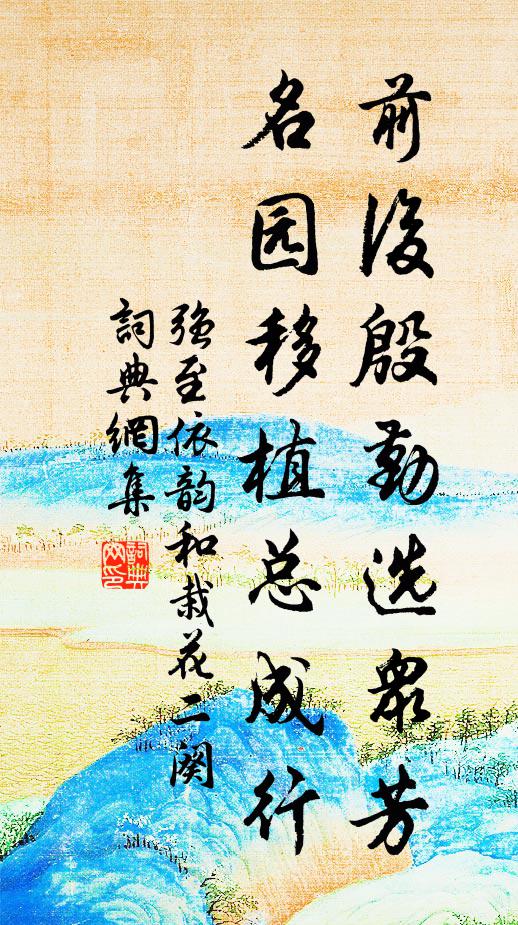 前後殷勤选眾芳
名园移植总成行
强至依韵和栽花二阕
詞典網集
詞典
网印